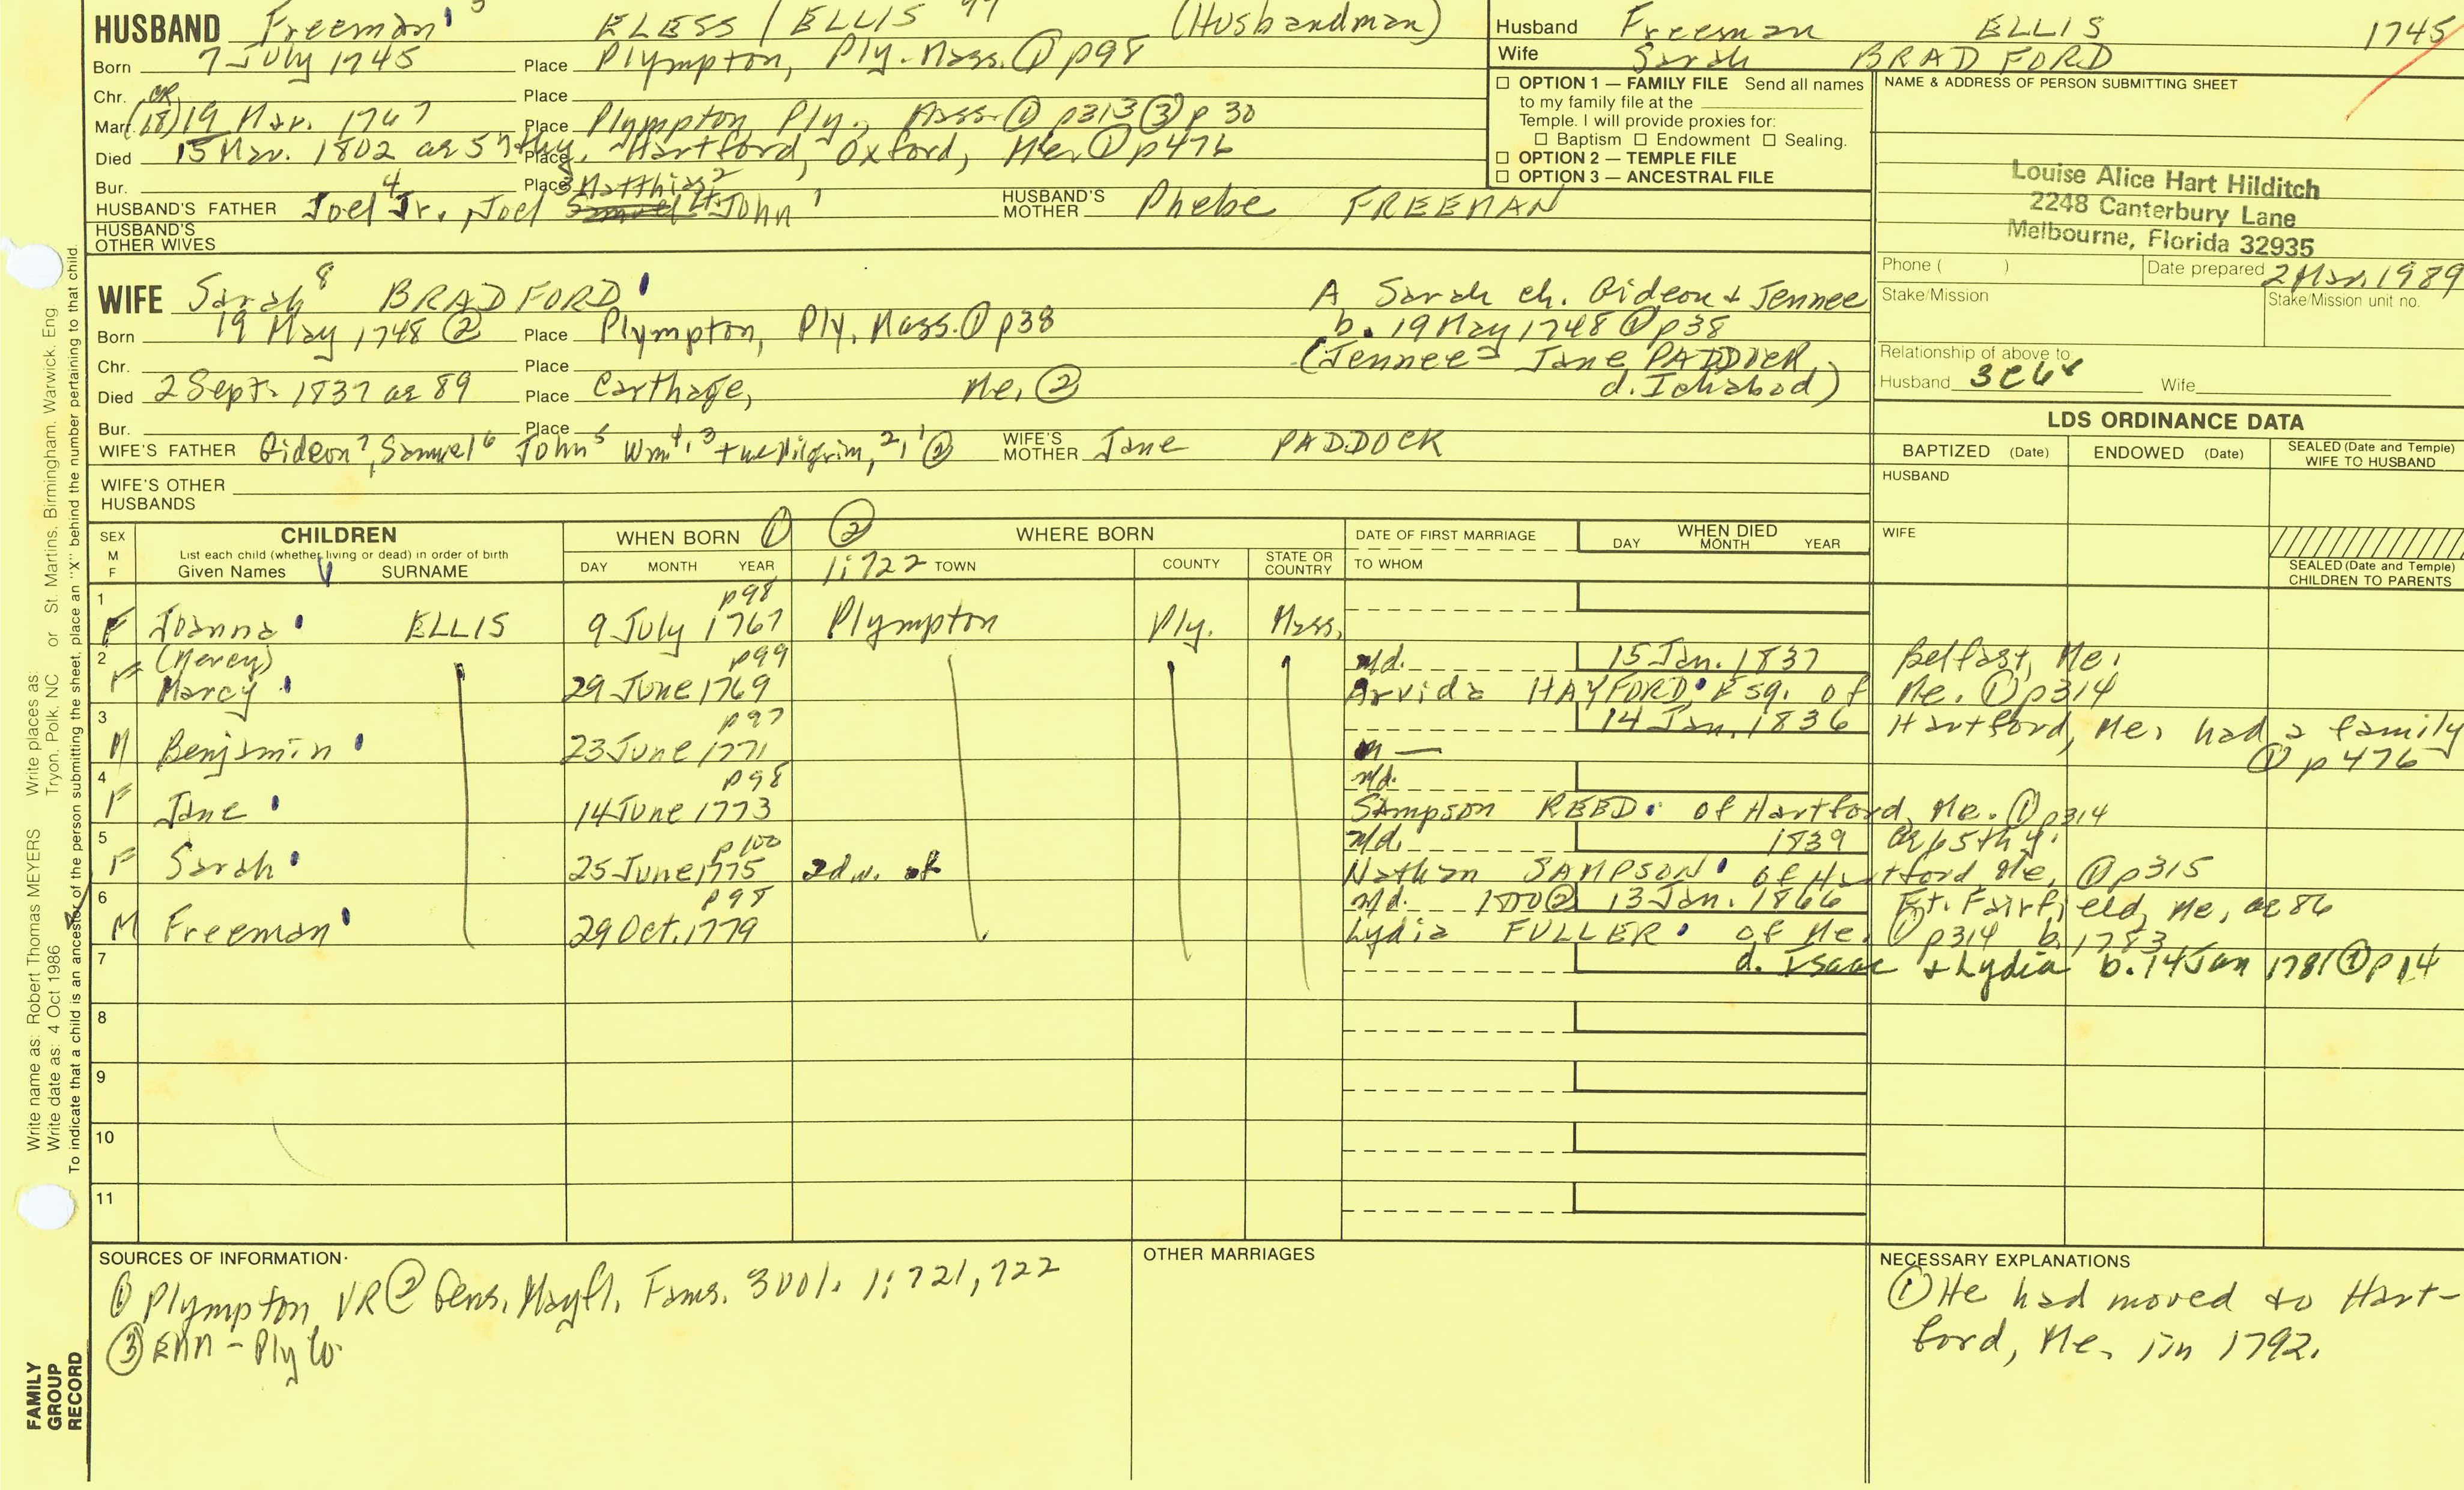 HUSBAND Freeman ELESS / ELLIS (Husbandman)
Born 7 July 1745 Place Plympton, Ply. Mass. ① p98
Chr. Place
Marr. (18) 19 Mar. 1767 Place Plympton Ply., Mass. ① p313 ③ p 30
Died 15 Mar. 1802 ae 57th y. Place Hartford, Oxford, Me. ① p476
Bur. Place
HUSBAND'S FATHER Joel 4 Jr., Joel 3 Matthias 2 Lt. John 1 HUSBAND'S MOTHER Phebe FREEMAN
HUSBAND'S OTHER WIVES
Husband Freeman ELLIS 1745
Wife Sarah BRADFORD
☐ OPTION 1 — FAMILY FILE Send all names
to my family file at the
Temple. I will provide proxies for:
☐ Baptism ☐ Endowment ☐ Sealing.
☐ OPTION 2 — TEMPLE FILE
☐ OPTION 3 — ANCESTRAL FILE
NAME & ADDRESS OF PERSON SUBMITTING SHEET
Louise Alice Hart Hilditch
2248 Canterbury Lane
Melbourne, Florida 32935
Phone ( ) Date prepared 2 Mar. 1989
Stake/Mission Stake/Mission unit no.
Relationship of above to
Husband Wife
WIFE Sarah 8 BRADFORD
Born 19 May 1748 ② Place Plympton, Ply, Mass. ① p38
Chr. Place
Died 2 Sept. 1837 ae 89 Place Carthage, Me. ②
Bur. Place
A Sarah ch. Gideon + Jennee
b. 19 May 1748 ① p38
(Jennee = Jane PADDOCK,
d. Ichabod)
WIFE'S FATHER Gideon 7, Samuel 6 John 5 Wm 4, 3 + the Pilgrim, 2, 1 ② WIFE'S MOTHER Jane PADDOCK
WIFE'S OTHER HUSBANDS
LDS ORDINANCE DATA
BAPTIZED (Date) ENDOWED (Date) SEALED (Date and Temple) WIFE TO HUSBAND
HUSBAND
WIFE
SEALED (Date and Temple) CHILDREN TO PARENTS
SEX M F CHILDREN WHEN BORN ① ② WHERE BORN DATE OF FIRST MARRIAGE WHEN DIED
List each child (whether living or dead) in order of birth DAY MONTH YEAR
Given Names SURNAME DAY MONTH YEAR 1:722 TOWN COUNTY STATE OR COUNTRY TO WHOM
1 p98
F Joanna ELLIS 9 July 1767 Plympton Ply. Mass.
2 (Mercy) p99 n/d. 15 Jan. 1837 Belfast, Me.
F Marcy 29 June 1769 Arvida HAYFORD Esq. of Me. ① p314
3 p97 14 Jan. 1836 Hartford, Me. had a family
M Benjamin 23 June 1771 m — ① p 476
4 p98 n/d.
F Jane 14 June 1773 Sampson REED of Hartford, Me. ① p314
5 p100 n/d. 1839 ae 65th y.
F Sarah 25 June 1775 2d w. of Nathan SAMPSON of Hartford Me. ① p315
6 p98 n/d. 1800 ② 13 Jan. 1866 Ft. Fairfield, Me, ae 86
M Freeman 29 Oct. 1779 Lydia FULLER of Me. ① p314 b. 1783
7 d. Isaac + Lydia b. 14 Jan 1781 ① p14
8
9
10
11
SOURCES OF INFORMATION
① Plympton VR ② Gens. Mayfl. Fams. 3001. 1:721,722
③ EMM - Ply Co.
OTHER MARRIAGES
NECESSARY EXPLANATIONS
① He had moved to Hart-
ford, Me. in 1792.
Write name as: Robert Thomas MEYERS Write places as: St. Martins, Birmingham, Warwick, Eng.
Write date as: 4 Oct 1986 Tryon, Polk, NC or
To indicate that a child is an ancestor of the person submitting the sheet, place an "X" behind the number pertaining to that child.
FAMILY GROUP RECORD